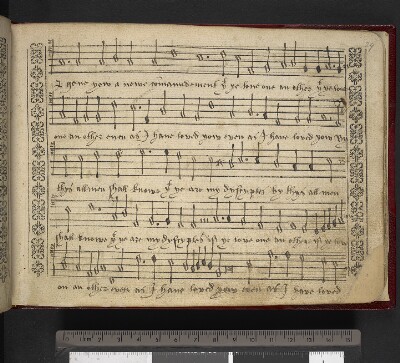 I geve yow a newe comaundement yt ye love one an other yt ye love
one an other even as I have loved yow even as I have loved yow By
thys all men shall knowe yt ye are my dyscyples by thys all men
shall knowe yt ye are my dyscyples yf ye love one an other yf ye love
on an other even as I have loved yow even as I have loved